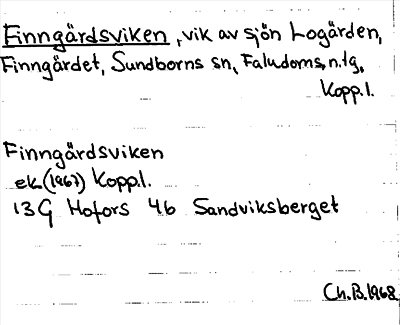 Finngärdsviken, vik av sjön Logärden,
Finngärdet, Sundborns sn, Faludoms n. tg,
Kopp. l.
Finngärdsviken
ek (1967) Kopp. l.
13G Hofors 4b Sandviksberget
Ch. B. 1968